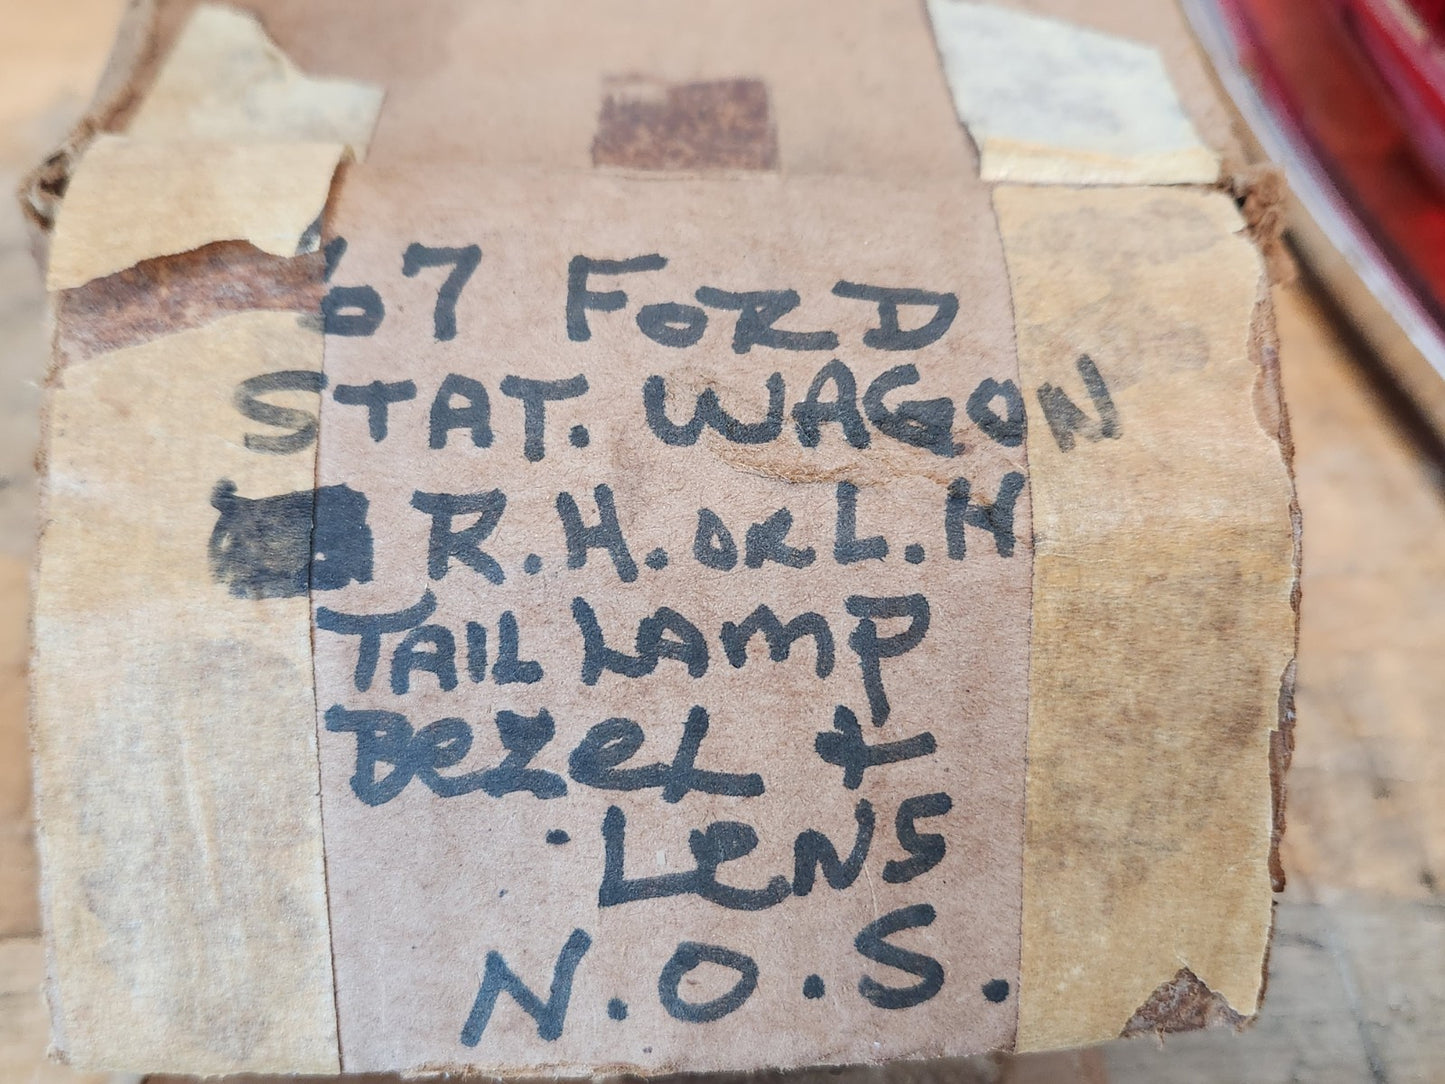 67 FORD
STAT. WAGON
R.H. OR L.H
TAIL LAMP
BEZEL +
LENS
N.O.S.